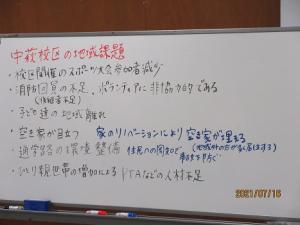 中萩校区の地域課題
・校区開催のスポーツ大会参加者減少
・消防団員の不足、ボランティアに非協力的である
(後継者不足)
・子ども達の地域離れ
・空き家が目立つ 家のリノベーションにより空き家が埋まる
(地域外の方が多く居住する)
・通学路の環境整備 住民への周知など
・ひとり親世帯の増加によるPTAなどの人材不足
2021/07/16